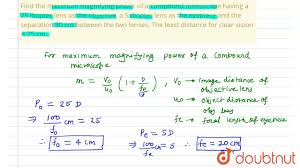 Find the maximum magnifying power of a compound microscope having a
25 diopter lens as the objective, a 5 diopter lens as the eyepiece and the
separation 30 cm between the two lenses. The least distance for clear vision
is 25 cm.
For maximum magnifying power of a compound
microscope
m = v₀/u₀ (1 + D/fe), v₀ → Image distance of
objective lens
u₀ → object distance of
obj lens
fe → focal length of eyepiece
P₀ = 25 D
⇒ 100/f₀ cm = 25
∴ f₀ = 4 cm
Pe = 5D
⇒ 100/fe cm = 5 ∴ fe = 20 cm
doubtnut